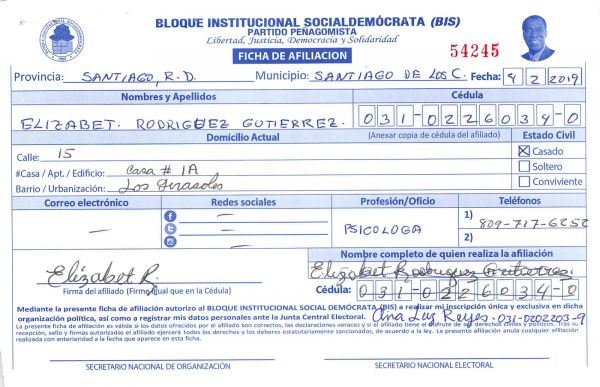 BLOQUE INSTITUCIONAL SOCIALDEMÓCRATA (BIS)
PARTIDO PEÑAGOMISTA
Libertad, Justicia, Democracia y Solidaridad
FICHA DE AFILIACION
54245
Provincia: SANTIAGO, R.D. Municipio: SANTIAGO DE LOS C. Fecha: 9/2/2019
Nombres y Apellidos Cédula
ELIZABET. RODRIGUEZ GUTIERREZ. 031-0226034-0
Domicilio Actual (Anexar copia de cédula del afiliado) Estado Civil
Calle: 15 Casado
#Casa / Apt. / Edificio: Casa # 1A Soltero
Barrio / Urbanización: Los Girasoles Conviviente
Correo electrónico Redes sociales Profesión/Oficio Teléfonos
PSICOLOGA 1) 809-717-6252
2)
Nombre completo de quien realiza la afiliación
Elizabet R. Elizabet Rodriguez Gutierrez.
Firma del afiliado (Firma igual que en la Cédula) Cédula: 031-0226034-0
Mediante la presente ficha de afiliación autorizo al BLOQUE INSTITUCIONAL SOCIAL DEMÓCRATA (BIS) a realizar mi inscripción única y exclusiva en dicha
organización política, así como a registrar mis datos personales ante la Junta Central Electoral. Ana Luz Reyes. 031-0202203-9
La presente ficha de afiliación es válida si los datos ofrecidos por el afiliado son correctos, las declaraciones veraces y si el afiliado tiene el disfrute de sus derechos civiles y políticos. Tras su
recepción, sello y firmas autorizadas el afiliado ejercerá todos los derechos y los deberes estatutariamente sancionados, de acuerdo a la ley. La presente afiliación anula cualquier afiliación
realizada con anterioridad a la fecha que aparece en esta ficha.
SECRETARIO NACIONAL DE ORGANIZACIÓN SECRETARIO NACIONAL ELECTORAL